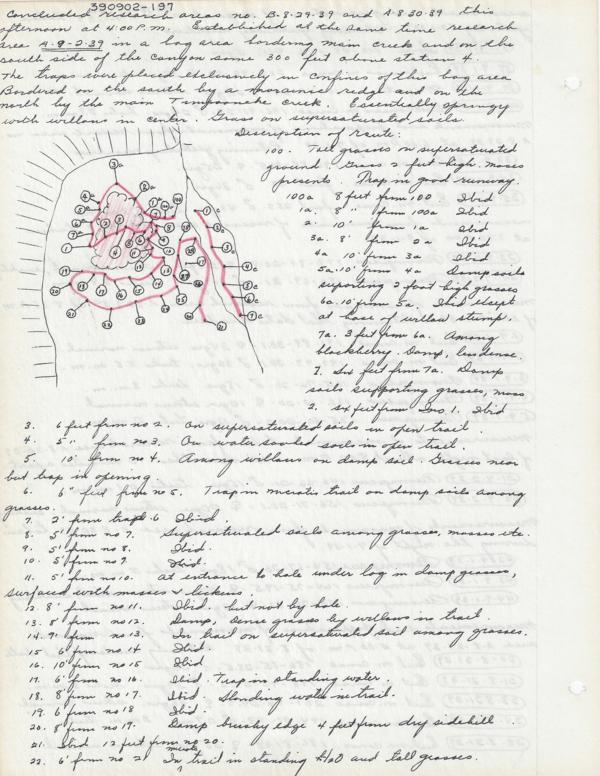 390902-197
Concluded research areas no. B-8-29-39 and A-8-30-39 this
afternoon at 4:00 P.m. Established at the same time research
area A-9-2-39 in a bog area bordering main creek and on the
south side of the canyon some 300 feet above station 4.
The traps were placed exclusively in confines of this bog area
Bordered on the south by a morainic ridge and on the
north by the main Timpooneke creek. Essentially springy
with willows in center. Grass on supersaturated soils.
Description of route:
100. Tall grasses on supersaturated
ground. Grass 2 feet high. moses
presents. Trap in good runway.
100a 8 feet from 100 Ibid
1a. 8 " from 100a Ibid
2. 10' from 1a Ibid
3a. 8' from 2a Ibid
4a 10' from 3a Ibid
5a. 10' from 4a Damp soils
suporting 2 foot high grasses
6a. 10' from 5a. Ibid except
at base of willow stump.
7a. 3 feet from 6a. Among
blackberry. Damp, less dense.
1. six feet from 7a. Damp
soils supporting grasses, moss
2. six feet from Ins 1. Ibid
3. 6 feet from no 2. On supersaturated soils in open trail.
4. 5 " from no 3. On water soaked soils in open trail.
5. 10' from no 4. Among willows on damp soil. Grasses near
but trap in opening
6. 6" feet from no 5. Trap in microtis trail on damp soils among
grasses.
7. 2' from trap 6 Ibid.
8. 5' from no 7. Supersaturated soils among grasses, mosses etc.
9. 5' from no 8. Ibid.
10. 5' from no 9 Ibid.
11. 5' from no 10. at entrance to hole under log in damp grasses,
surfaced with masses & lichens.
12. 8' from no 11. Ibid. but not by hole.
13. 8' from no 12. Damp, dense grasses by willows in trail.
14. 9' from no 13. In trail on supersaturated soil among grasses.
15 6' from no 14 Ibid.
16. 10' from no 15 Ibid
17. 6' from no 16. Ibid. Trap in standing water.
18. 8' from no 17. Ibid. Standing water in trail.
19. 6' from no 18 Ibid.
20. 8' from no 19. Damp brushy edge 4 feet from dry sidehill.
21. Ibid 12 feet from no 20.
22. 6' from no 21 In microtis trail in standing H2O and tall grasses.